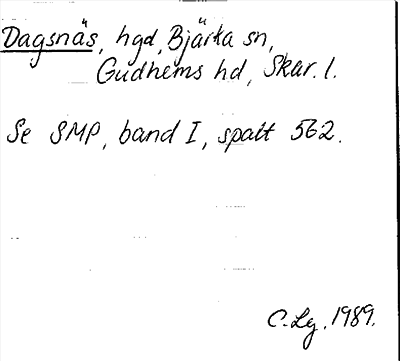 Dagsnäs, hgd, Bjärka sn,
Gudhems hd, Skar. l.
Se SMP, band I, spalt 562.
C. Lg. 1989.